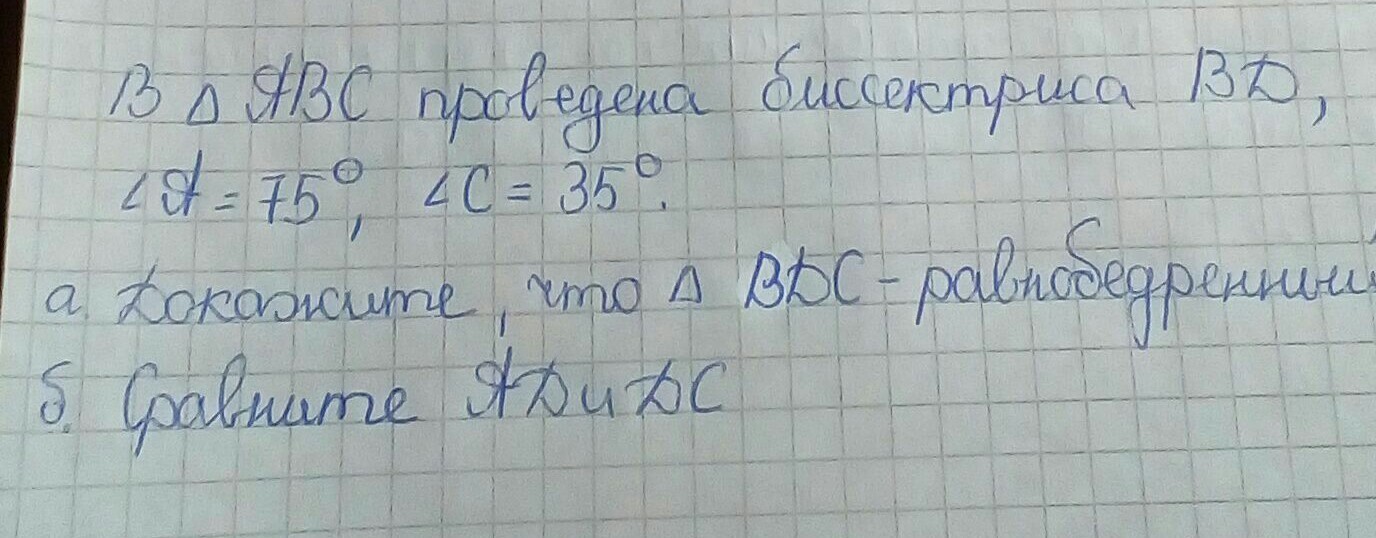 В △ АВС проведена биссектриса ВD,
∠А = 75°, ∠С = 35°.
а. Докажите, что △ ВDС - равнобедренный
б. Сравните АD и DС